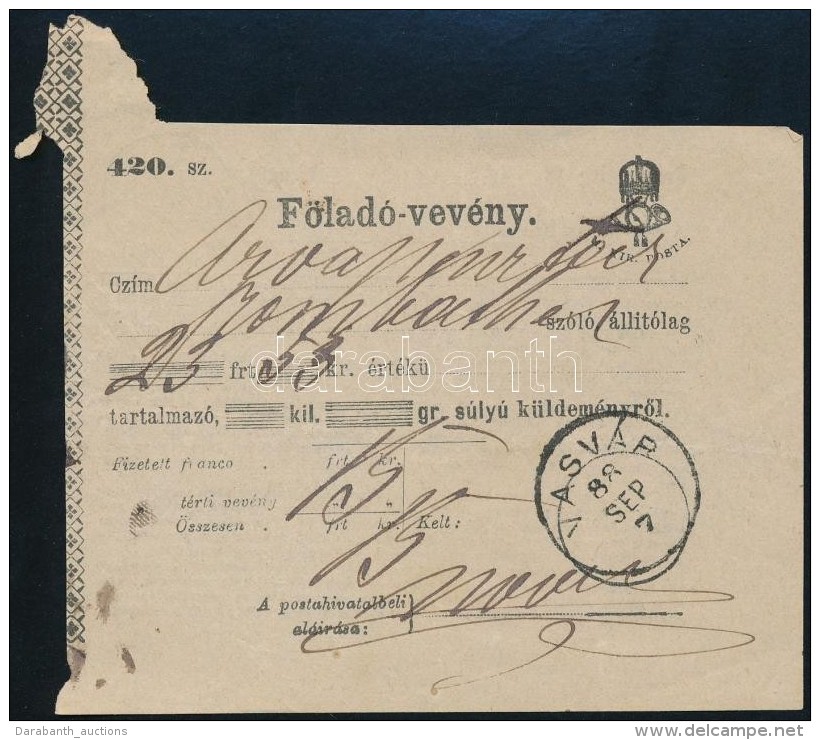 420. sz.
Föladó-vevény.
KIR. POSTA.
Czím
szóló állítólag
25 frt 53 kr. értékü
darabanth
tartalmazó, kil. gr. súlyú küldeményről.
Fizetett franco . frt kr.
15
térti vevény „ „
Összesen . frt kr. Kelt:
15
VASVÁR
88
SEP
7
A postahivatalbeli
aláirása:
Darabanth_auctions
delcampe.net